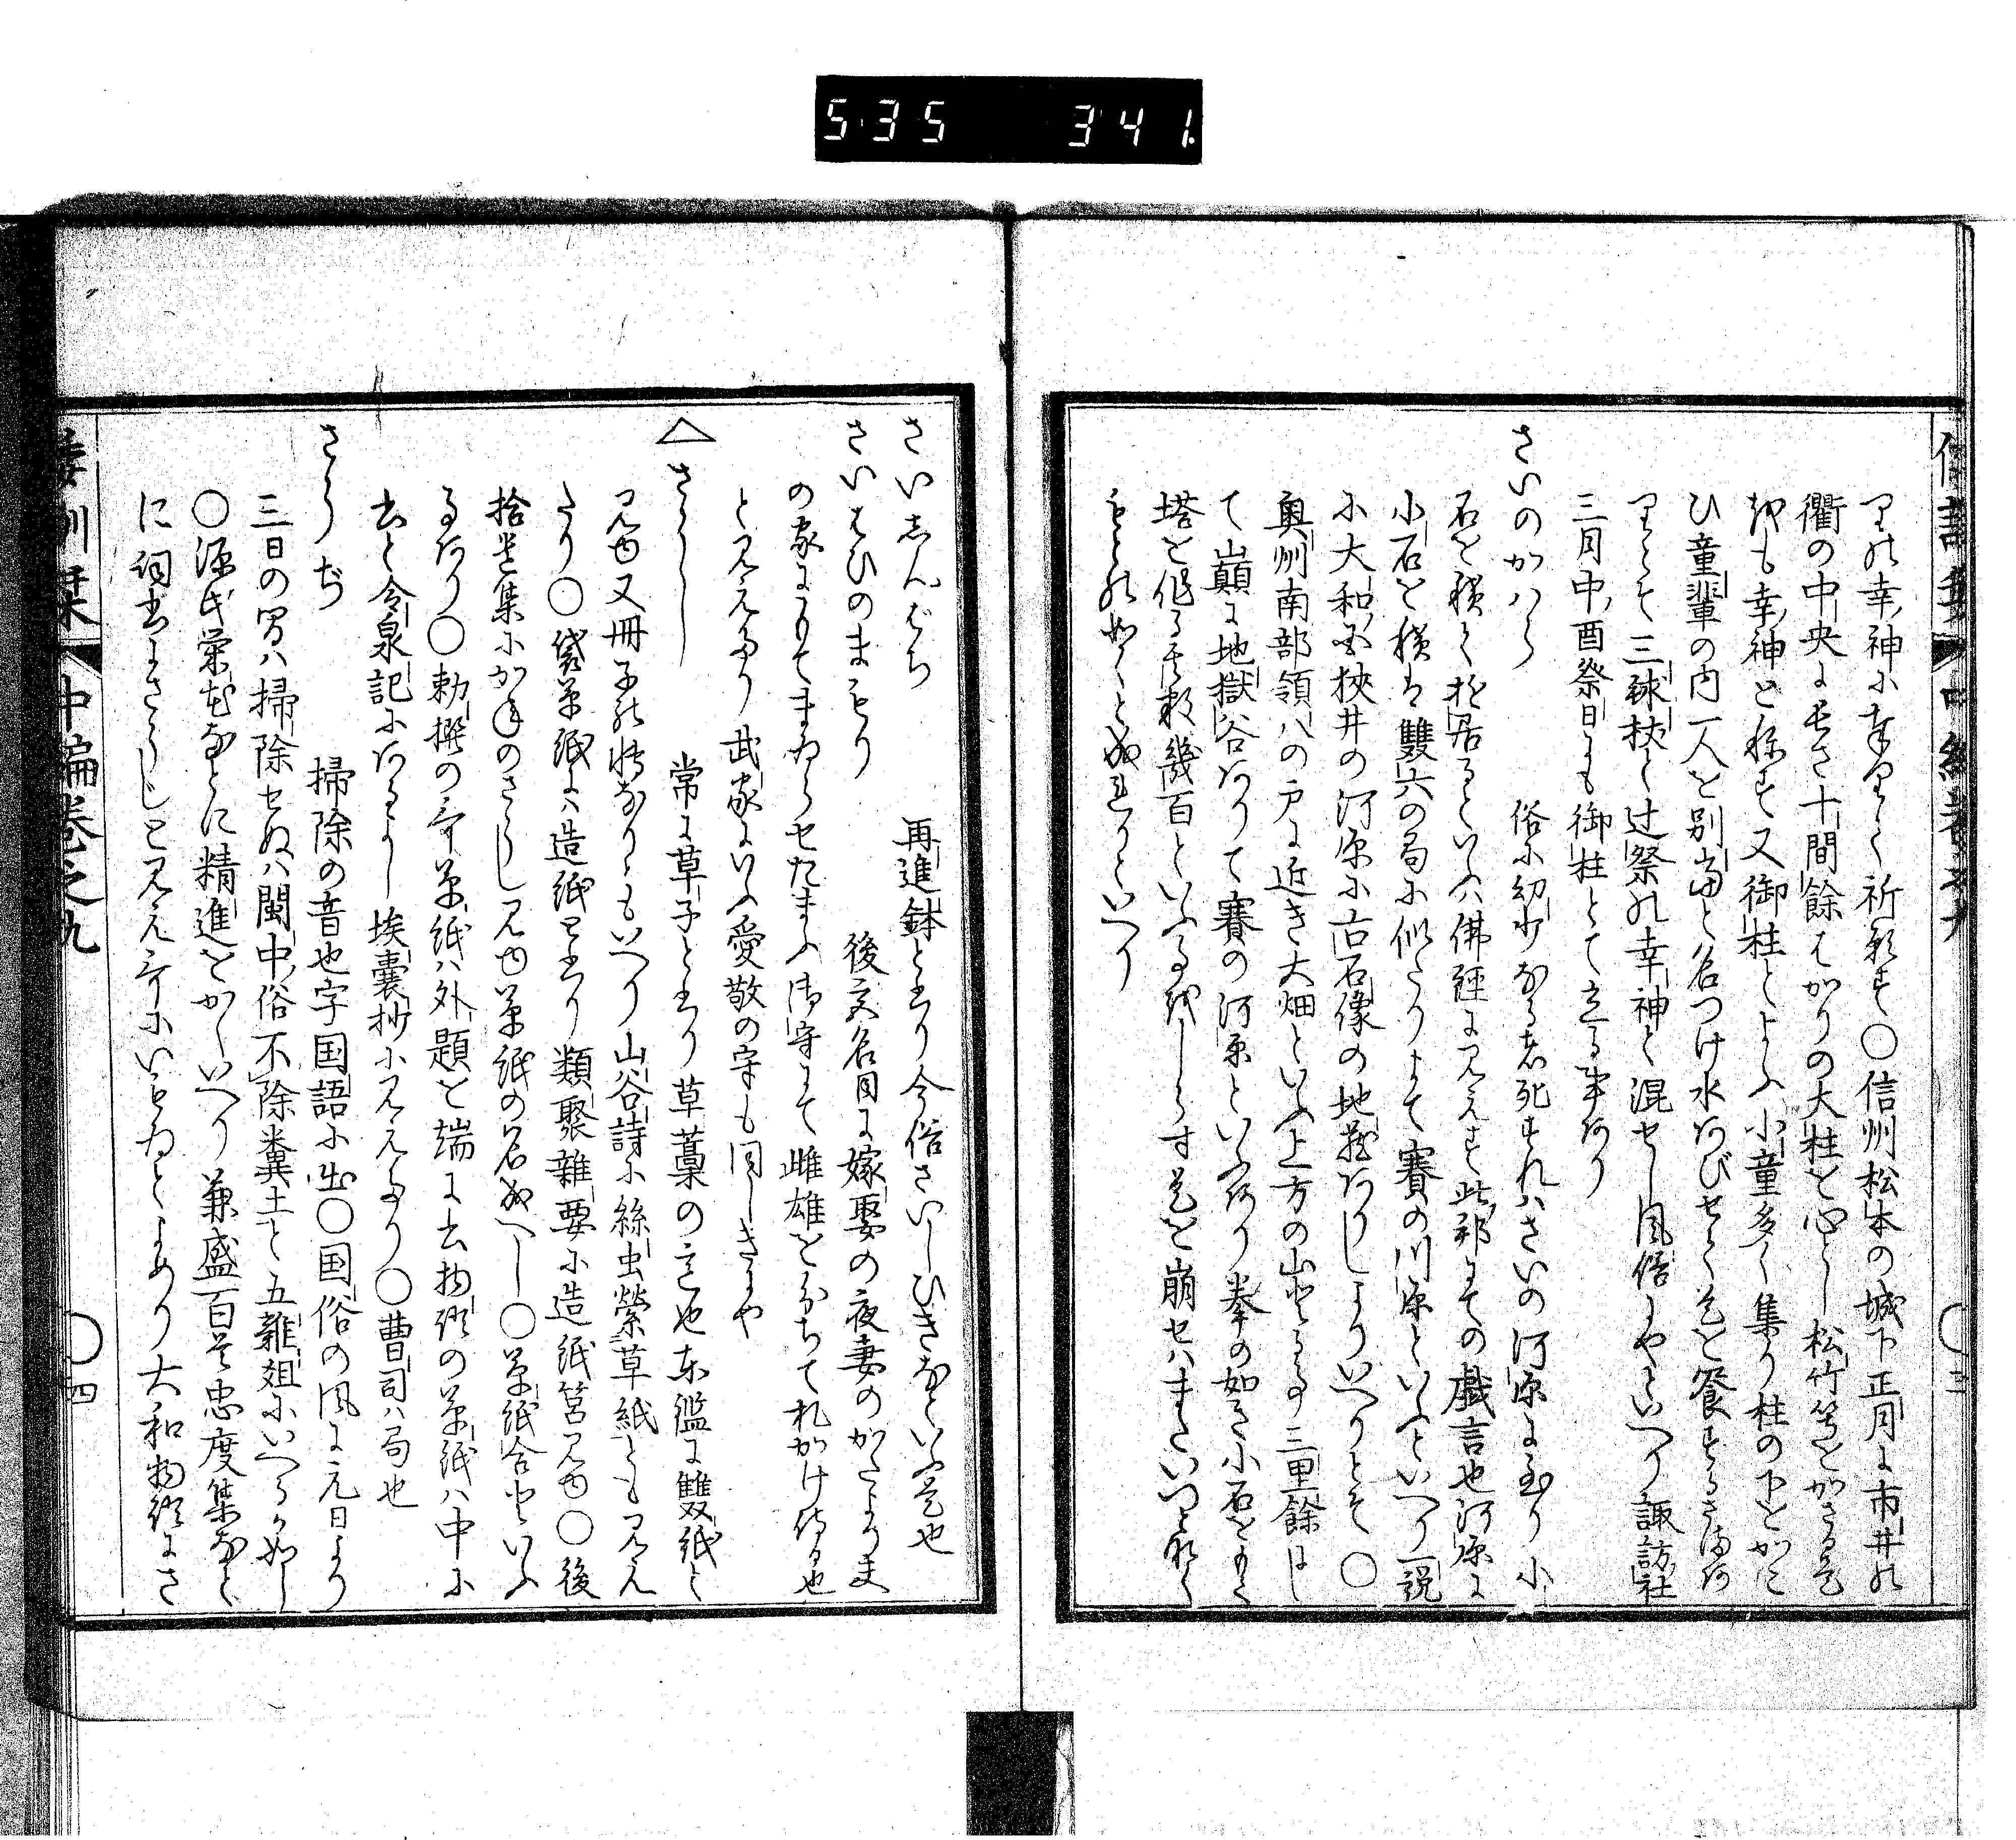 535 341.
りの幸神に奉りて祈願す○信州松本の城下正月に市井の
衢の中央に長さ十間餘はかりの大柱を心とし松竹等をかさる是
をも幸神と称す又御柱とよふ小童多く集り柱の下をかこ
ひ童輩の内一人を別当と名つけ水あびせて是を饗するさまあ
りとそ三毬杖と辻祭の幸神と混せし風俗にやといへり諏訪社
三月中酉祭日にも御柱とて立る事あり
さいのかハら 俗に幼少なる者死すれハさいの河原に至り小
石を積て居るといふハ佛経に見えす此邦にての戯言也河原に
小石を積は雙六の局に似たりよて賽の川原といふといへり一説
に大和国狭井の河原に古石像の地蔵ありしよりいへりとそ○
奥州南部領八の戸に近き大畑といふ上方の山登る事三里餘にし
て山巓に地獄谷ありて賽の河原といふあり拳の如き小石をもて
塔を作る其数幾百といふるをしらす是を崩せハまたいつとなく
もとの如くと成れりといへり
さいしんばち 再進鉢と書り今俗さいしひきなといふ是也
さいはひのまもり 後文名目に嫁娶の夜妻のかたよりま
の家にもてまゐらせたまふ御守にて雌雄を分ちて礼かけ侍る也
と見えたり武家にいふ愛敬の守も同しきにや
△さうし 常に草子と書り草藁の言也東鑑に雙紙と
見ゆ又冊子の転なりともいへり山谷詩に絲虫縈草紙とも見え
たり○袋草紙に造紙と書り類聚雜要に造紙筥見ゆ○後
拾遺集にかねのさうし見ゆ草紙の名成へし○草紙合といふ
事あり○勅撰の哥草紙ハ外題を端に書物語の草紙ハ中に
書と令泉記にあるよし埃囊抄に見えたり○曹司ハ局也
さうぢ 掃除の音也字国語に出○国俗の風に元日より
三日の間ハ掃除せぬハ閩中俗不除糞土と五雜爼にいへるか如し
○源氏栄花なとに精進をかくいへり兼盛百首忠度集なと
に詞書にさうじと見え哥にいもゐとよめり大和物語にさ
倭訓栞 中編卷之九 四